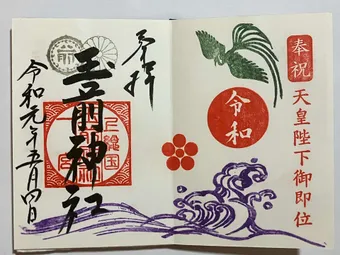 奉祝
天皇陛下御即位
令和
奉拝
玉前神社
上総国
令和元年五月四日